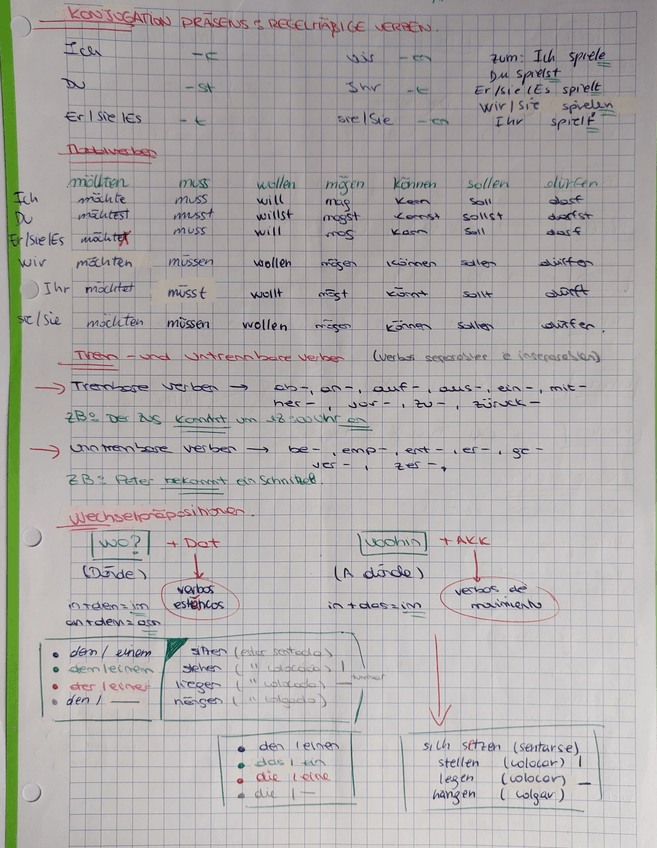 KONJUGATION PRÄSENS: REGELMÄßIGE VERBEN.
Ich -e wir -en zum: Ich spiele
Du spielst
Du -st Ihr -t Er/sie/Es spielt
Wir/Sie spielen
Er/sie/Es -t sie/Sie -en Ihr spielt
möchten muss wollen mögen können sollen dürfen
Ich möchte muss will mag kann soll darf
Du möchtest musst willst magst kannst sollst darfst
Er/sie/Es muss will mag kann soll darf
Wir möchten müssen wollen mögen können sollen dürfen
Ihr möchtet müsst wollt mögt könnt sollt dürft
sie/Sie möchten müssen wollen mögen können sollen dürfen.
Tren- und untrennbare verben (verbos separables e inseparables)
→ Trenbare verben → ab-, an-, auf-, aus-, ein-, mit-
her-, vor-, zu-, züruck-
ZB: Der Zug kommt um 12:00 Uhr an
→ untrenbare verben → be-, emp-, ent-, er-, ge-
ver-, zer-,
ZB: Peter bekommt ein Schnitzel.
Wechselpräpositionen.
wo? + Dat wohin + AKK
(Dónde) (A dónde)
verbos estáticos
verbos de movimiento
in+den=im in+das=im
an+den=am
• dem / einem sitzen (estar sentado)
• dem / einem stehen (" colocado) |
• der / einer liegen (" colocado) —
• den / — hängen (" colgado)
• den / einen sich setzen (sentarse)
• das / ein stellen (colocar) |
• die / eine legen (colocar) —
• die / — hängen (colgar)